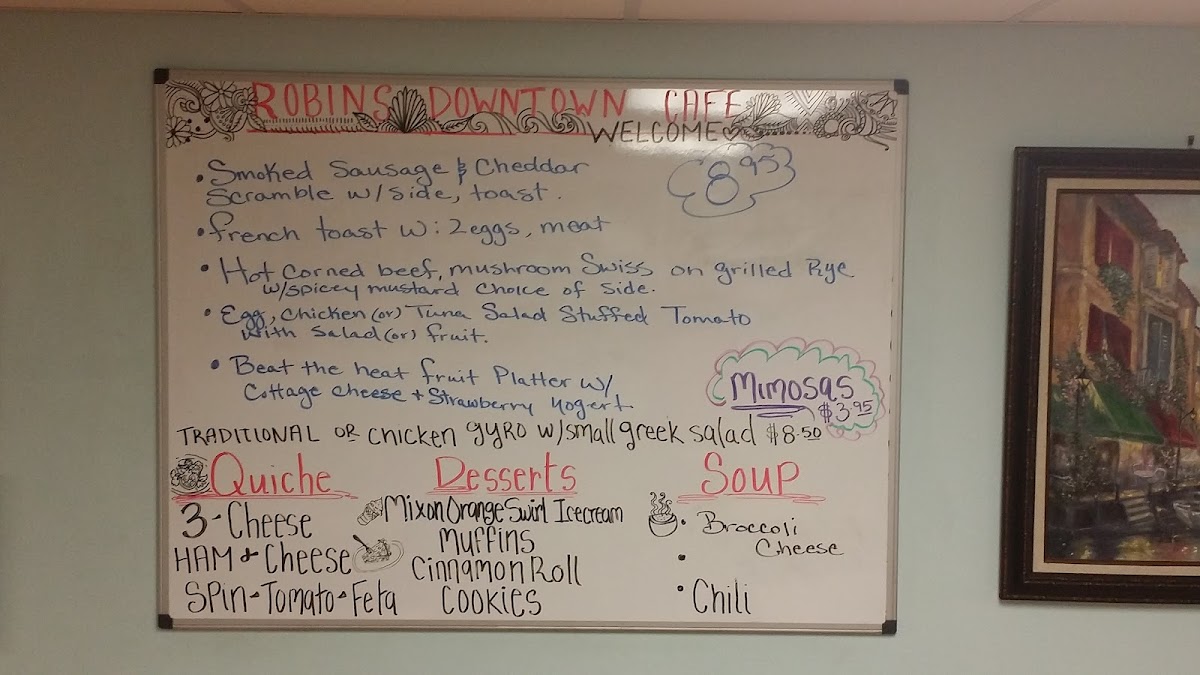 ROBINS DOWNTOWN CAFE
WELCOME
• Smoked Sausage & Cheddar
Scramble w/side, toast.
8 95
• french toast w: 2eggs, meat
• Hot corned beef, mushroom Swiss on grilled Rye
w/spicey mustard choice of side.
• Egg, chicken (or) Tuna Salad Stuffed Tomato
with salad (or) fruit.
• Beat the heat fruit Platter w/
Cottage cheese + Strawberry Yogert
Mimosas
$3.95
TRADITIONAL OR chicken gyro w/small greek salad $8.50
Quiche
3-Cheese
HAM & Cheese
SPin-Tomato-Feta
Desserts
Mixon Orange Swirl Icecream
Muffins
Cinnamon Roll
COOKIES
Soup
• Broccoli
Cheese
•
• Chili